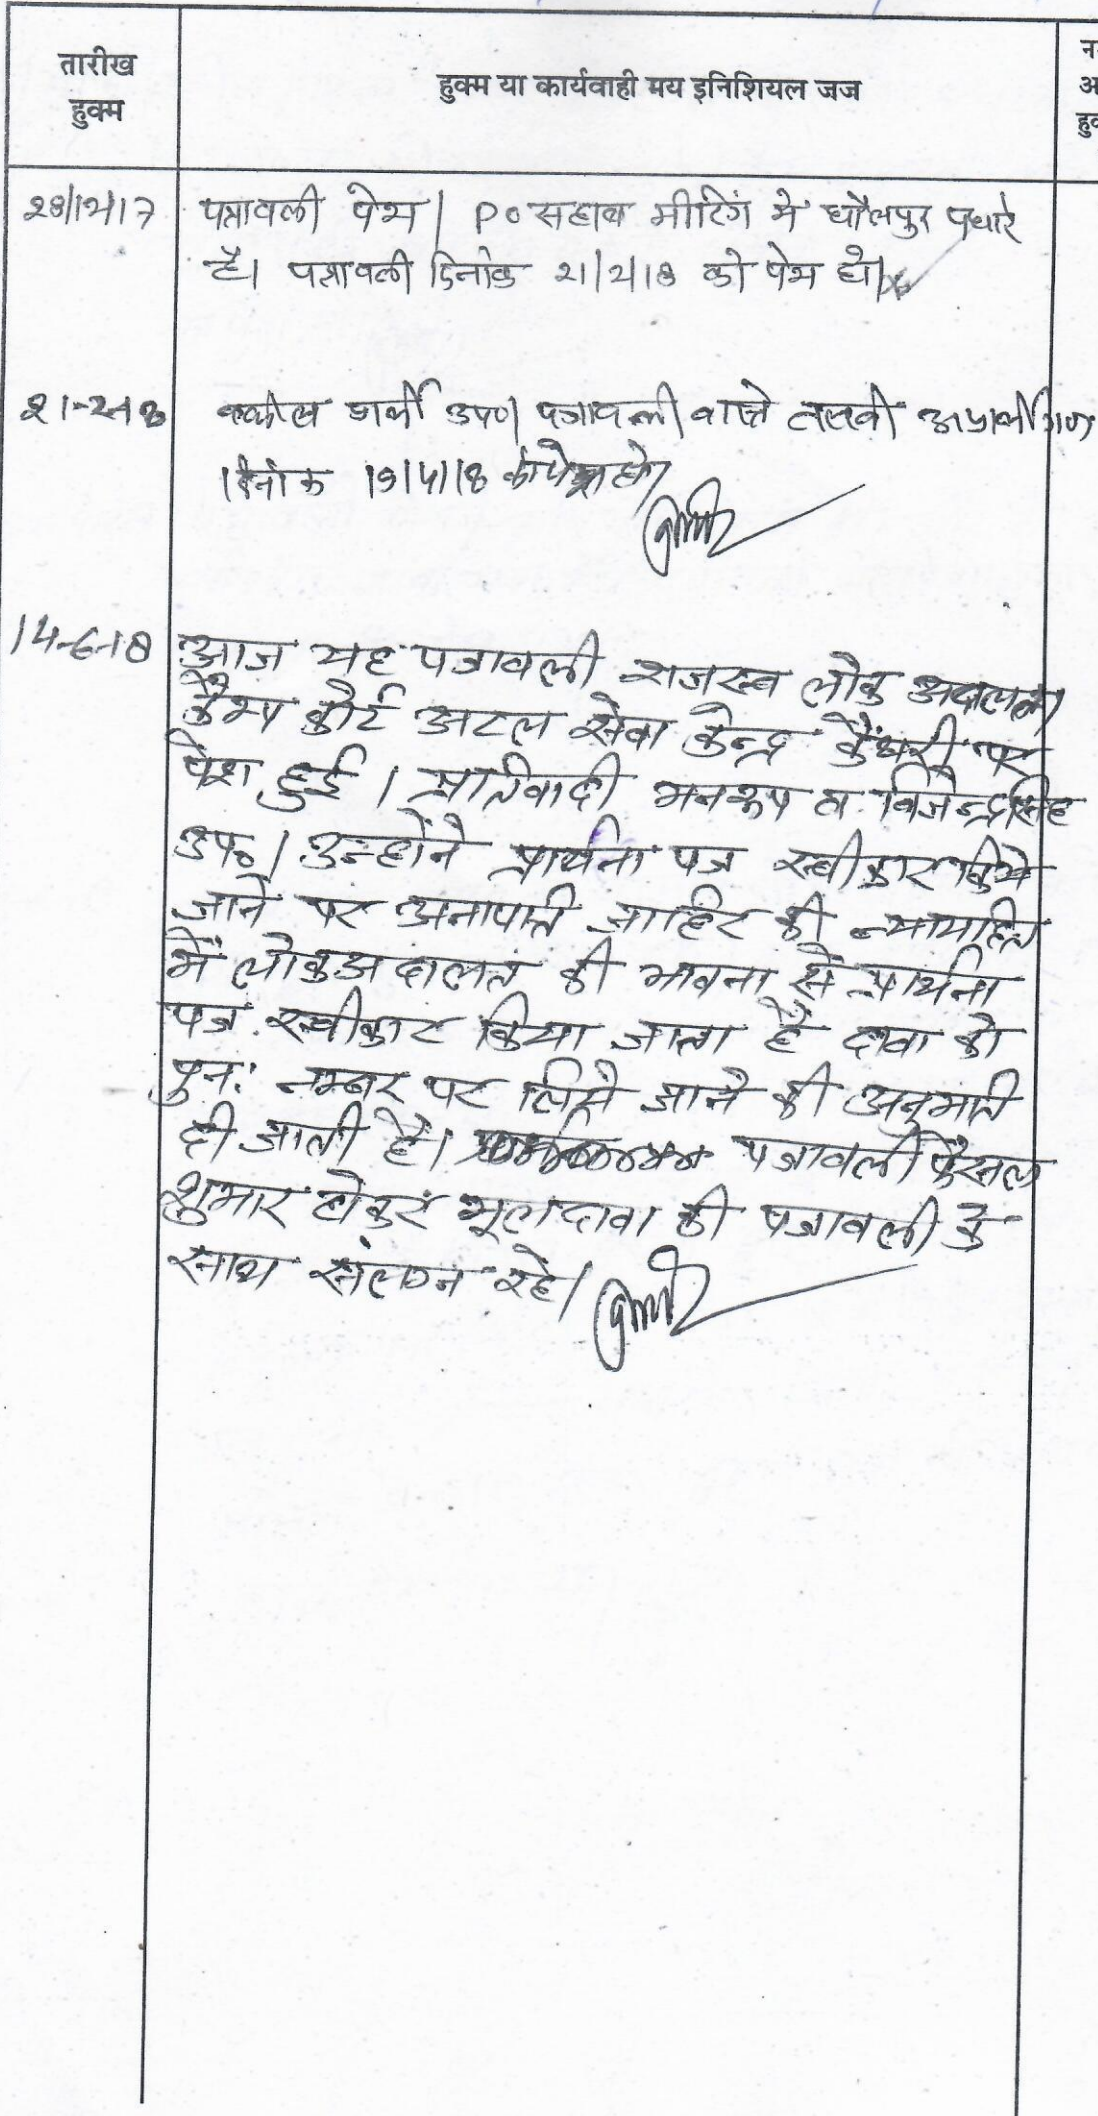 तारीख
हुक्म
हुक्म या कार्यवाही मय इनिशियल जज
28/12/17 पत्रावली पेश। P० सहाब मीटिंग में धौलपुर पधारे
है। पत्रावली दिनांक 21/2/18 को पेश हो।
21-2-18 वकील प्रार्थी उप० पत्रावली वास्ते तलबी अप्रार्थीगण
दिनांक 19/4/18 को पेश हो।
14-6-18 आज यह पत्रावली राजस्व लोक अदालत
कैम्प कोर्ट अटल सेवा केन्द्र पर
पेश हुई। प्रतिवादी व विजेन्द्रसिंह
उप०। उन्होंने प्रार्थना पत्र स्वीकार किये
जाने पर अनापत्ति जाहिर की न्यायहित
में लोक अदालत की भावना से प्रार्थना
पत्र स्वीकार किया जाता है दावा को
पुनः नम्बर पर लिये जाने की अनुमति
दी जाती है। पत्रावली फैसल
शुमार होकर मूल दावा की पत्रावली के
साथ संलग्न रहे।